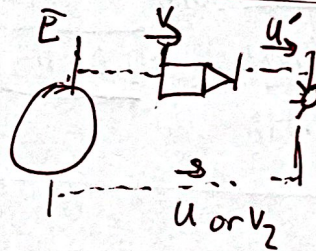 E V u'
s
u or v₂